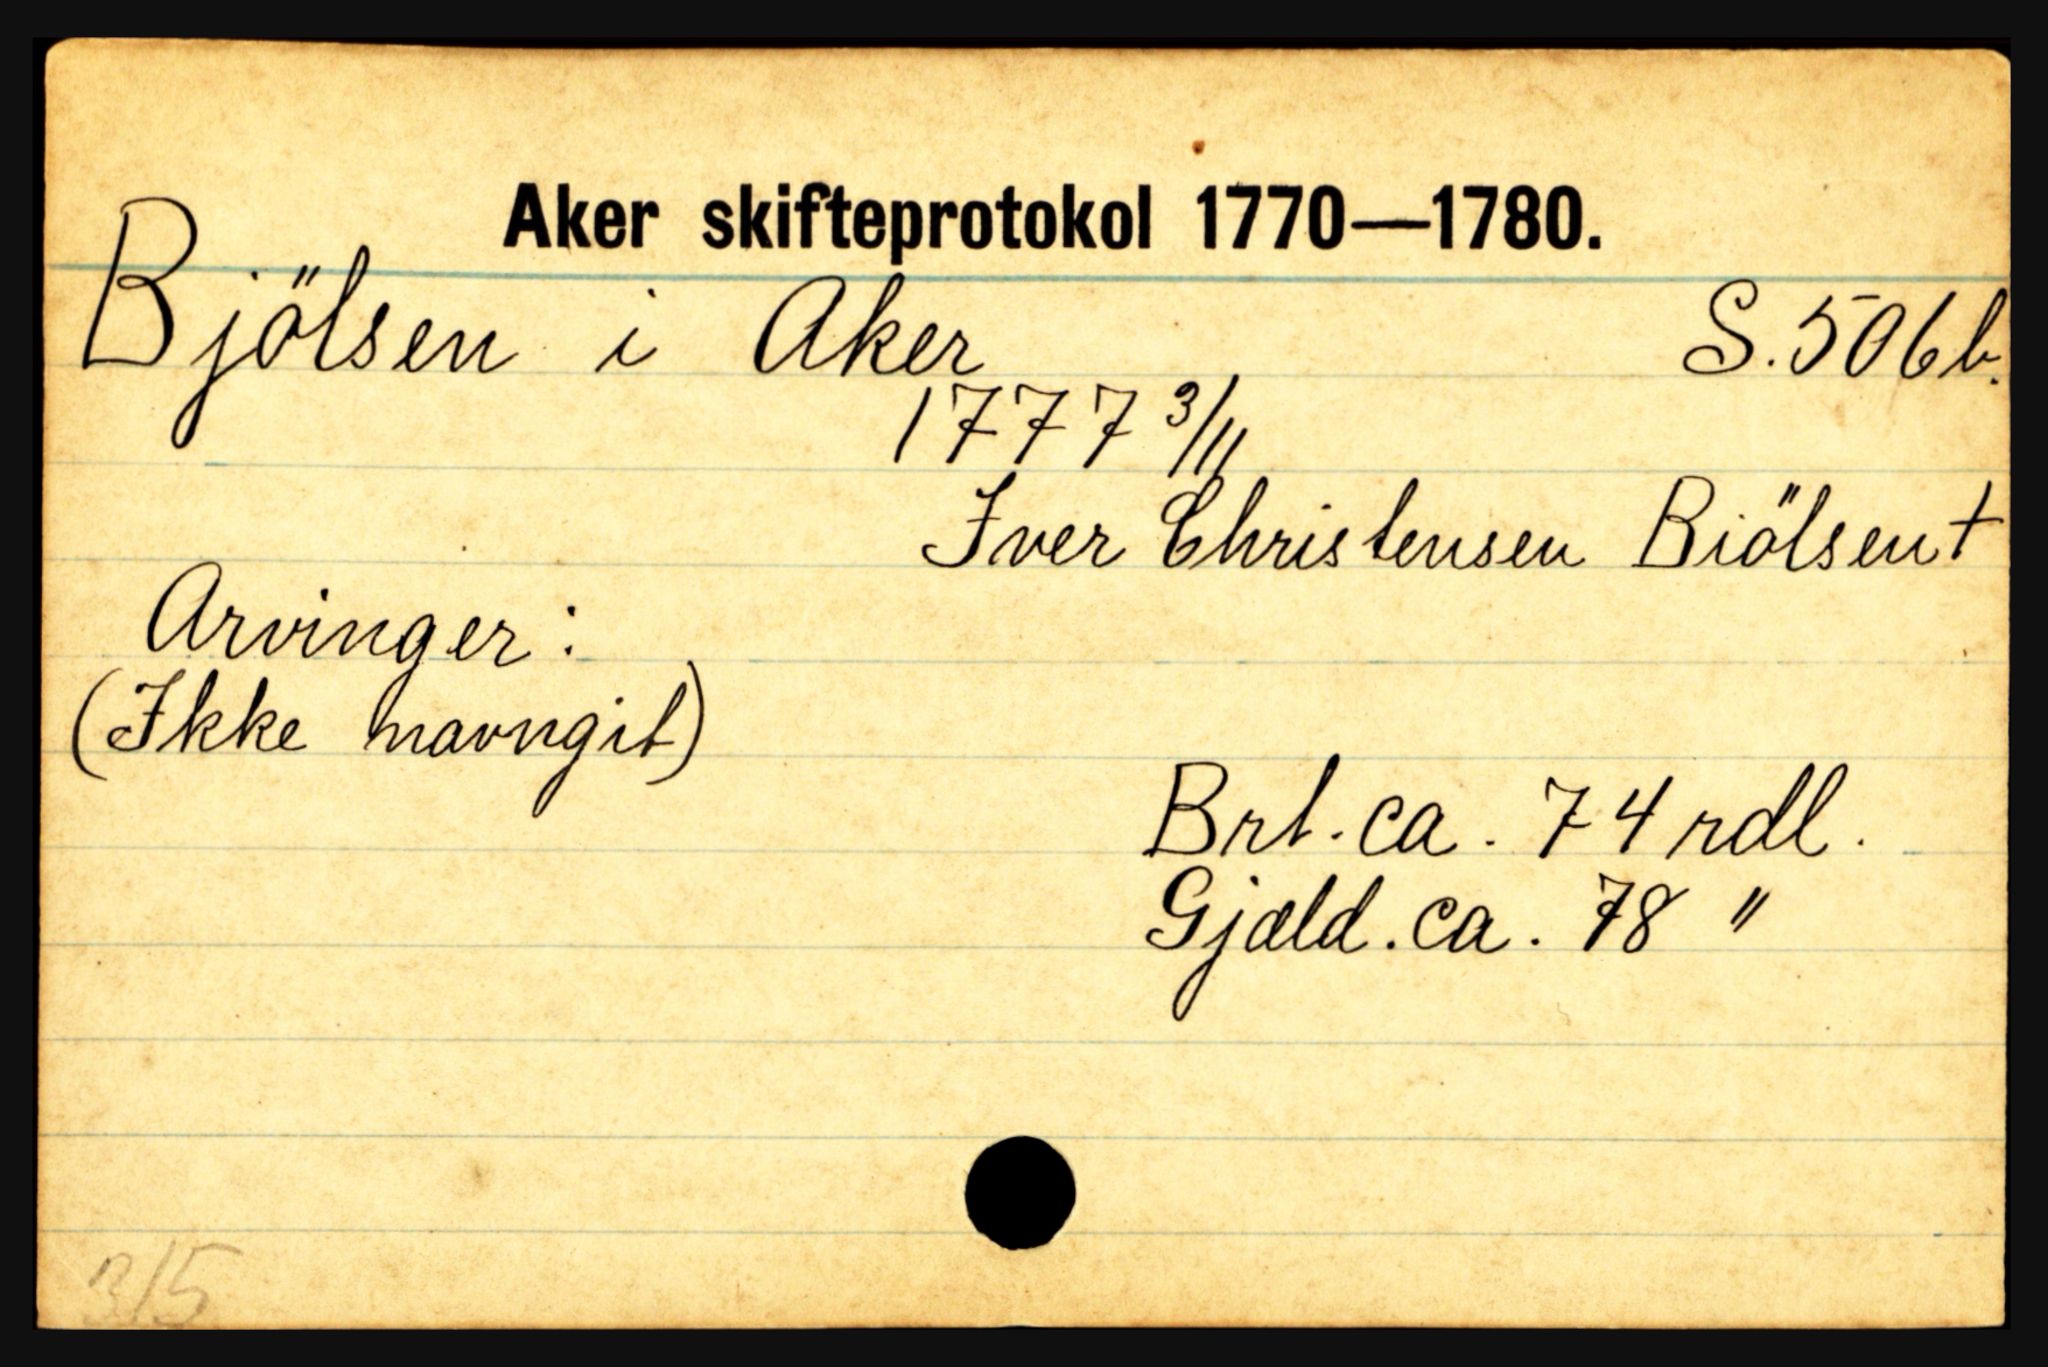 Aker skifteprotokol 1770—1780.
Bjölsen i Aker S. 506b.
1777 3/11
Iver Christensen Biölsen +
Arvinger:
(Ikke navngit)
Brt. ca. 74 rdl.
Gjæld. ca. 78 "
315